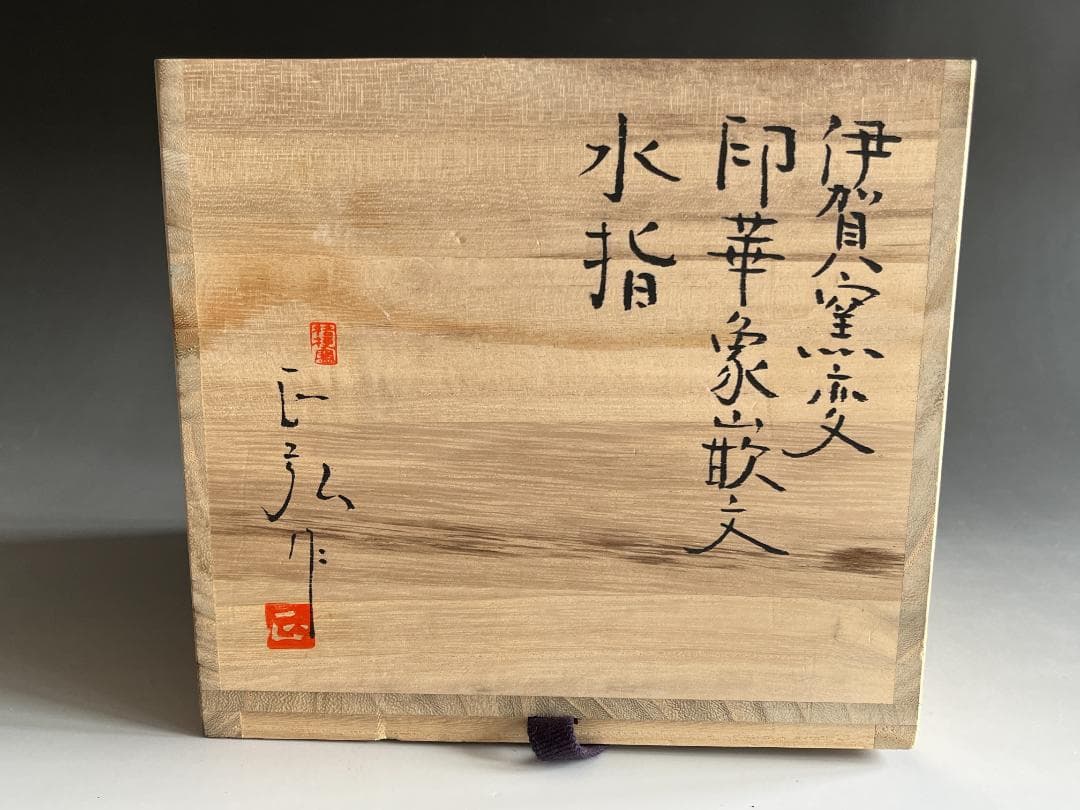 伊賀窯変
印華象嵌文
水指
正弘作
正